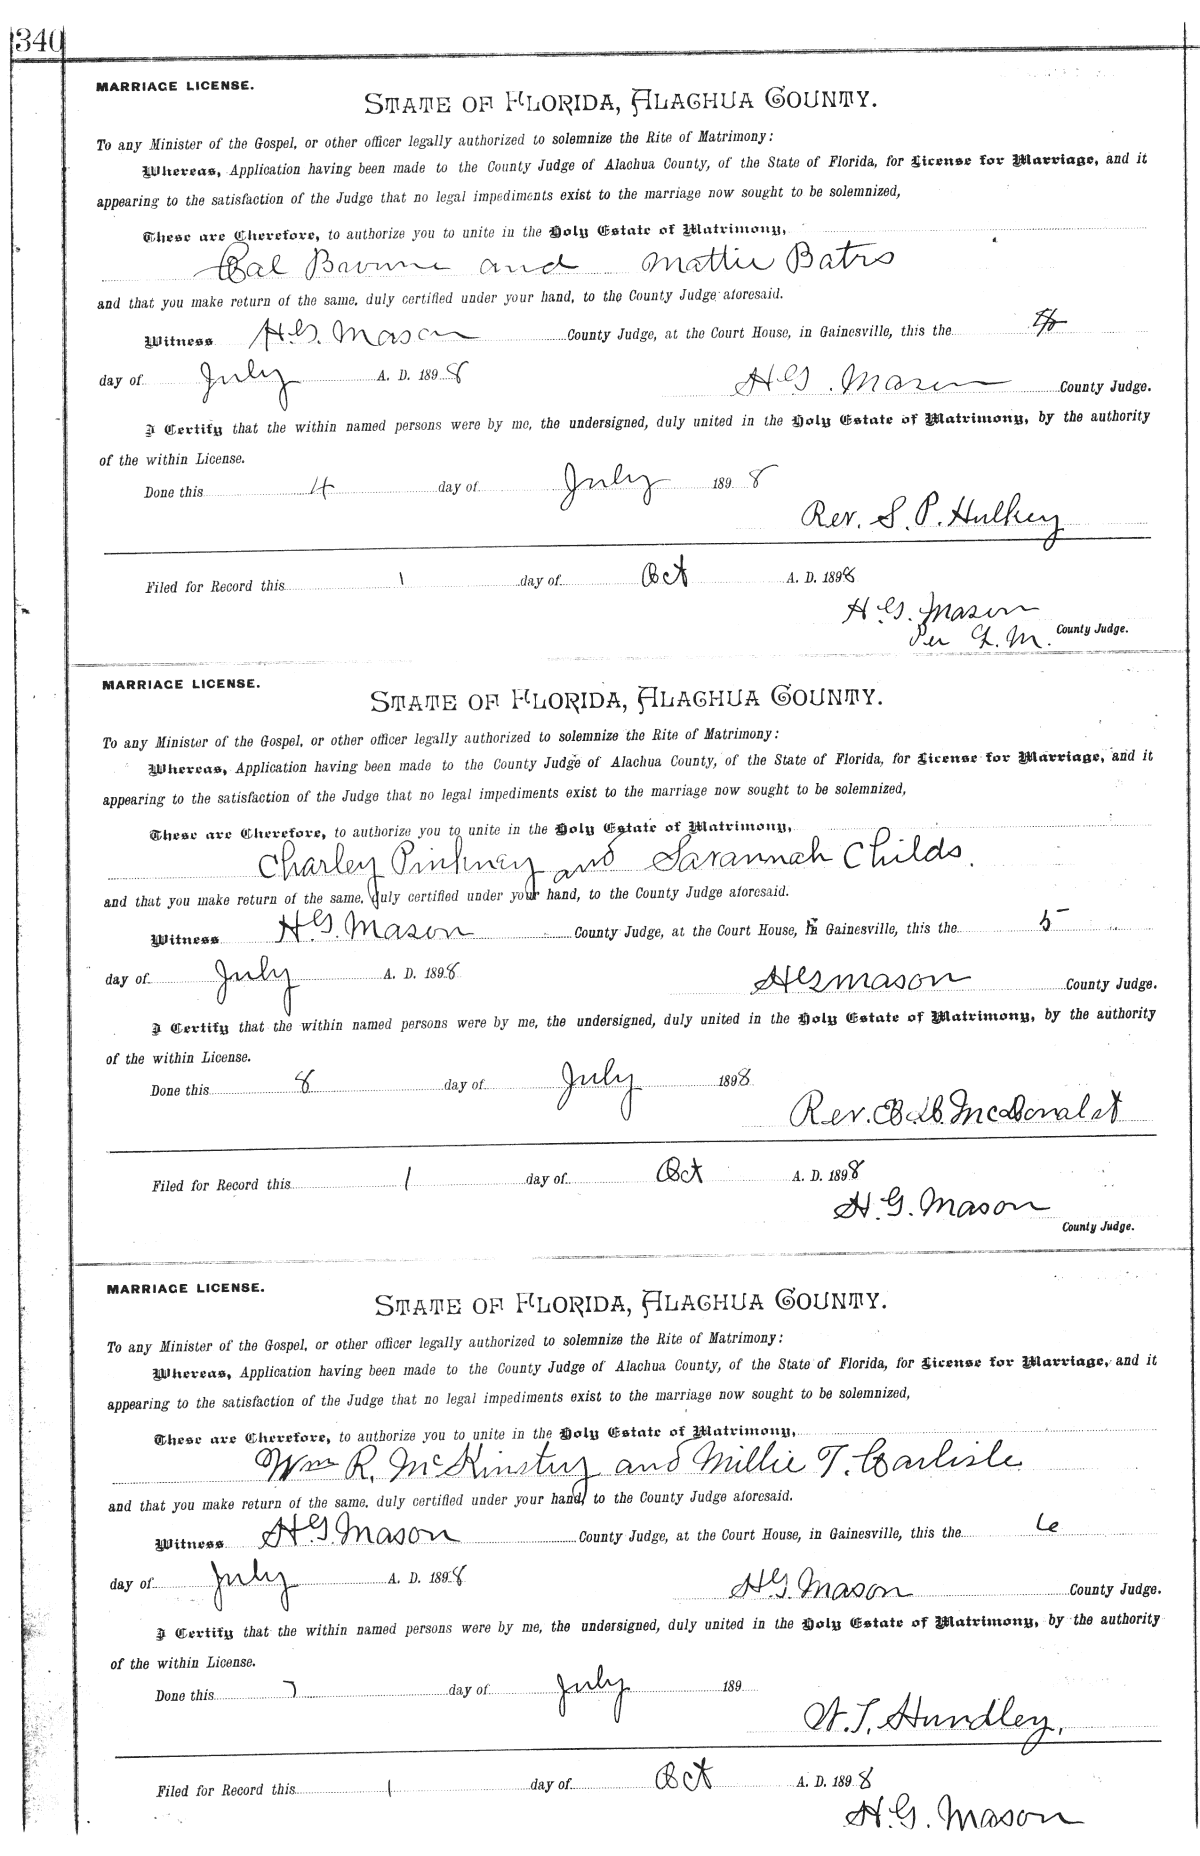 340
MARRIAGE LICENSE.
STATE OF FLORIDA, ALACHUA COUNTY.
To any Minister of the Gospel, or other officer legally authorized to solemnize the Rite of Matrimony:
Whereas, Application having been made to the County Judge of Alachua County, of the State of Florida, for License for Marriage, and it
appearing to the satisfaction of the Judge that no legal impediments exist to the marriage now sought to be solemnized,
These are Therefore, to authorize you to unite in the Holy Estate of Matrimony,
Cal Browne and Mattie Bates
and that you make return of the same, duly certified under your hand, to the County Judge aforesaid.
Witness H.G. Mason County Judge, at the Court House, in Gainesville, this the
day of July A. D. 1898 H.G. Mason County Judge.
I Certify that the within named persons were by me, the undersigned, duly united in the Holy Estate of Matrimony, by the authority
of the within License.
Done this 4 day of July 1898
Rev. S. P. Hulkey
Filed for Record this 1 day of Oct A. D. 1898
H. G. Mason
Per L. M. County Judge.
MARRIAGE LICENSE.
STATE OF FLORIDA, ALACHUA COUNTY.
To any Minister of the Gospel, or other officer legally authorized to solemnize the Rite of Matrimony:
Whereas, Application having been made to the County Judge of Alachua County, of the State of Florida, for License for Marriage, and it
appearing to the satisfaction of the Judge that no legal impediments exist to the marriage now sought to be solemnized,
These are Therefore, to authorize you to unite in the Holy Estate of Matrimony,
Charley Pinkney and Savannah Childs.
and that you make return of the same, duly certified under your hand, to the County Judge aforesaid.
Witness H.G. Mason County Judge, at the Court House, in Gainesville, this the 5
day of July A. D. 1898 H G Mason County Judge.
I Certify that the within named persons were by me, the undersigned, duly united in the Holy Estate of Matrimony, by the authority
of the within License.
Done this 8 day of July 1898
Rev. McDonald
Filed for Record this 1 day of Oct A. D. 1898
H. G. Mason
County Judge.
MARRIAGE LICENSE.
STATE OF FLORIDA, ALACHUA COUNTY.
To any Minister of the Gospel, or other officer legally authorized to solemnize the Rite of Matrimony:
Whereas, Application having been made to the County Judge of Alachua County, of the State of Florida, for License for Marriage, and it
appearing to the satisfaction of the Judge that no legal impediments exist to the marriage now sought to be solemnized,
These are Therefore, to authorize you to unite in the Holy Estate of Matrimony,
Wm R. McKinstry and Millie T. Carlisle
and that you make return of the same, duly certified under your hand, to the County Judge aforesaid.
Witness H.G. Mason County Judge, at the Court House, in Gainesville, this the 6
day of July A. D. 1898 H.G. Mason County Judge.
I Certify that the within named persons were by me, the undersigned, duly united in the Holy Estate of Matrimony, by the authority
of the within License.
Done this 7 day of July 189
W. T. Hundley,
Filed for Record this 1 day of Oct A. D. 1898
H. G. Mason